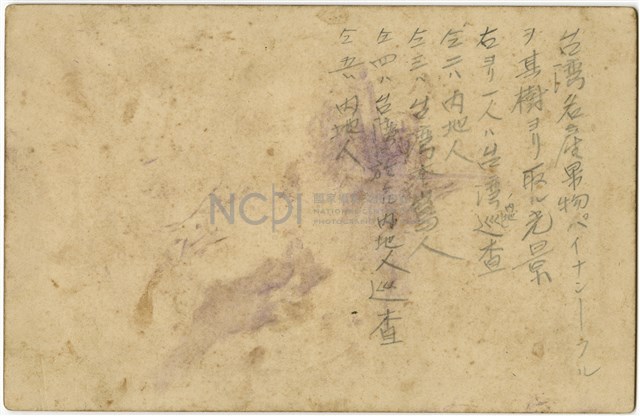 台湾名産果物パイナップル
ヲ其樹ヨリ取ル光景
右ヨリ一人ハ台湾巡査
仝二ハ内地人
仝三ハ台湾土人
仝四ハ台湾 内地人巡査
仝五ハ内地人
NCPI